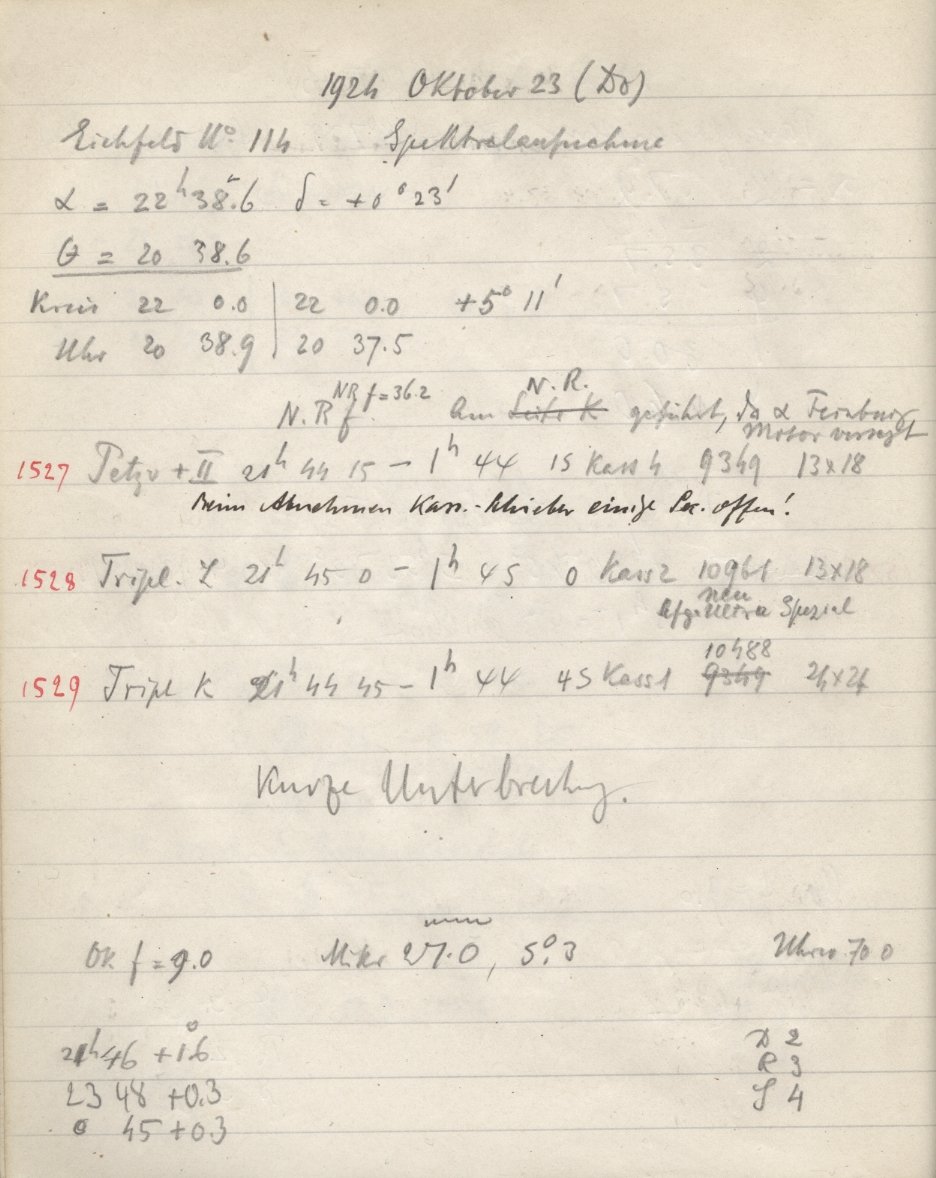 1924 Oktober 23 (Do)
Eichfeld No 114 Spektralaufnahme
α = 22h 38.6 δ = +0° 23'
θ = 20 38.6
Kreis 22 0.0 | 22 0.0 +5° 11'
Uhr 20 38.9 | 20 37.5
NR f = 36.2 N. R.
N. R f Am Leitr K geführt, da α Feinbewg
Motor versagt
1527 Petzv + II 21h 44 15 – 1h 44 15 Kass 4 9349 13x18
Beim Abnehmen Kass.-Schieber einige Sec. offen!
1528 Tripl. L 21h 45 0 – 1h 45 0 Kass 2 10961 13x18
neu
Agfa Ultra Spezial
10488
1529 Tripl K 21h 44 45 – 1h 44 45 Kass 1 9349 24x24
Kurze Unterbrechg.
Ok f = 9.0 Mikr 27.0, 5°.3 Uhrw. 70 0
21h 46 +1°.6
23 48 +0.3
0 45 +0.3
D 2
R 3
S 4